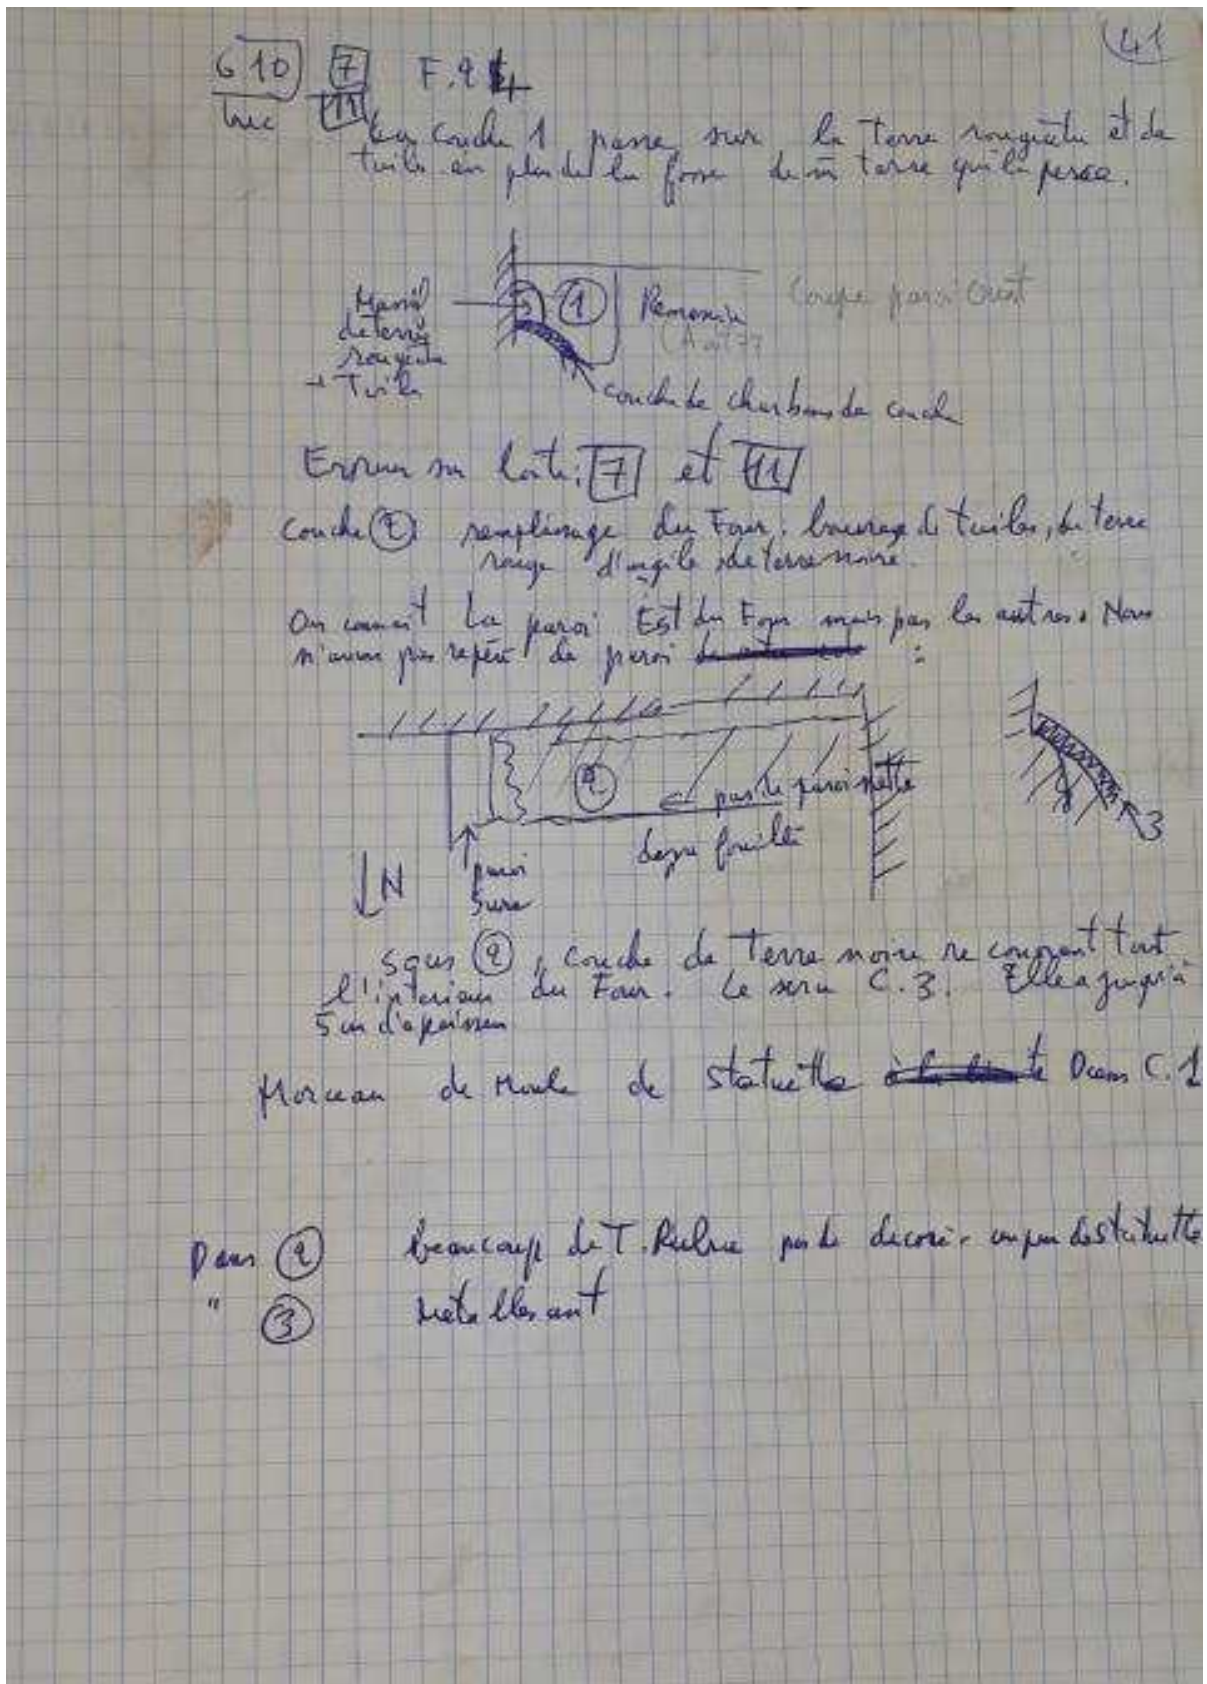 41
610 7 F.24
11
La couche 1 passe sur la terre rougeatre et de
tuiles en plus de la fosse de m terre qui la perce.
Massif
de terre
rougeatre
+ Tuiles
1
Remanié
Août 77
Coupe paroi Ouest
couche de charbons de couche
Erreur sur 7 et 11
couche 2 remplissage du Four. bourrage de tuiles, de terre
rouge d'argile de terre noire.
On connait La paroi Est du Four mais pas les autres. Nous
n'avons pas repéré de paroi :
2
pas de paroi nette
deja fouillé
N
paroi
Sure
3
sous 2, couche de Terre noire recouvrant tout
l'interieur du Four. Ce sera C.3. Elle a jusqu'à
5 cm d'epaisseur
Morceau de Moule de statuette Dans C.1
Dans 2 beaucoup de T. pas de decoré. un peu de statuette
" 3